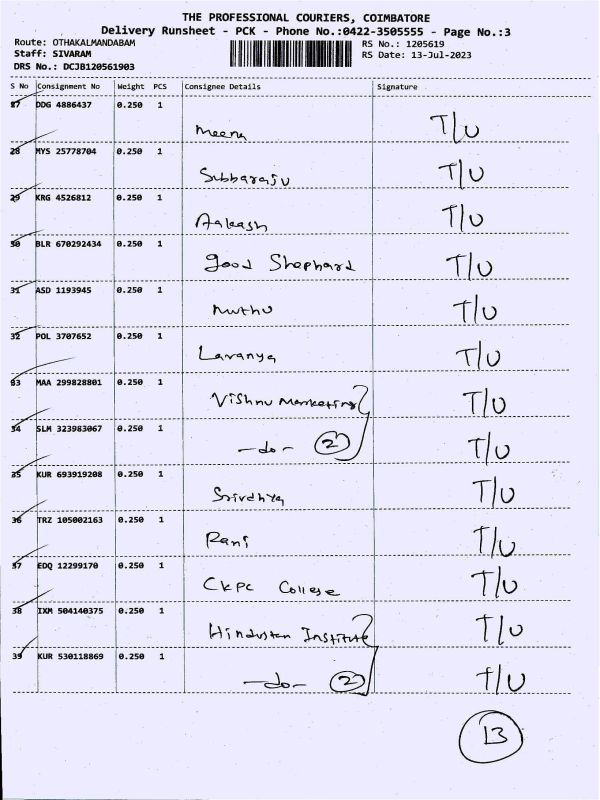 THE PROFESSIONAL COURIERS, COIMBATORE
Delivery Runsheet - PCK - Phone No.:0422-3505555 - Page No.:3
Route: OTHAKALMANDABAM RS No.: 1205619
Staff: SIVARAM RS Date: 13-Jul-2023
DRS No.: DCJB120561903
S No Consignment No Weight PCS Consignee Details Signature
27 DDG 4886437 0.250 1
Meena T/U
28 MYS 25778704 0.250 1
Subbaraju T/U
29 KRG 4526812 0.250 1
Aakash T/U
30 BLR 670292434 0.250 1
good Shephard T/U
31 ASD 1193945 0.250 1
muthu T/U
32 POL 3707652 0.250 1
Lavanya T/U
33 MAA 299828801 0.250 1
Vishnu Marketing T/U
34 SLM 323983067 0.250 1
-do- 2 T/U
35 KUR 693919208 0.250 1
Srividhya T/U
36 TRZ 105002163 0.250 1
Rani T/U
37 EDQ 12299170 0.250 1
CKPC College T/U
38 IXM 504140375 0.250 1
Hindustan Institute T/U
39 KUR 530118869 0.250 1
-do- 2 T/U
13